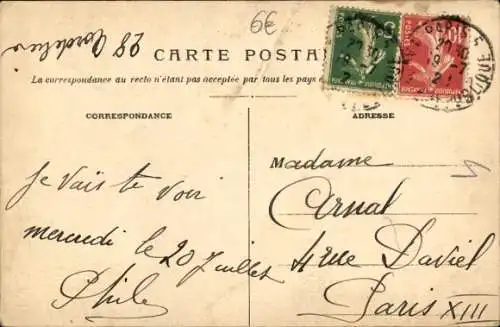 6€
28 Cordelier
CARTE POSTA
La correspondance au recto n'étant pas acceptée par tous les pays
CORRESPONDANCE
ADRESSE
Je vais te voir
mercredi le 20 Juillet
Phile
Madame
Arnal
4 rue Daviel
Paris XIII